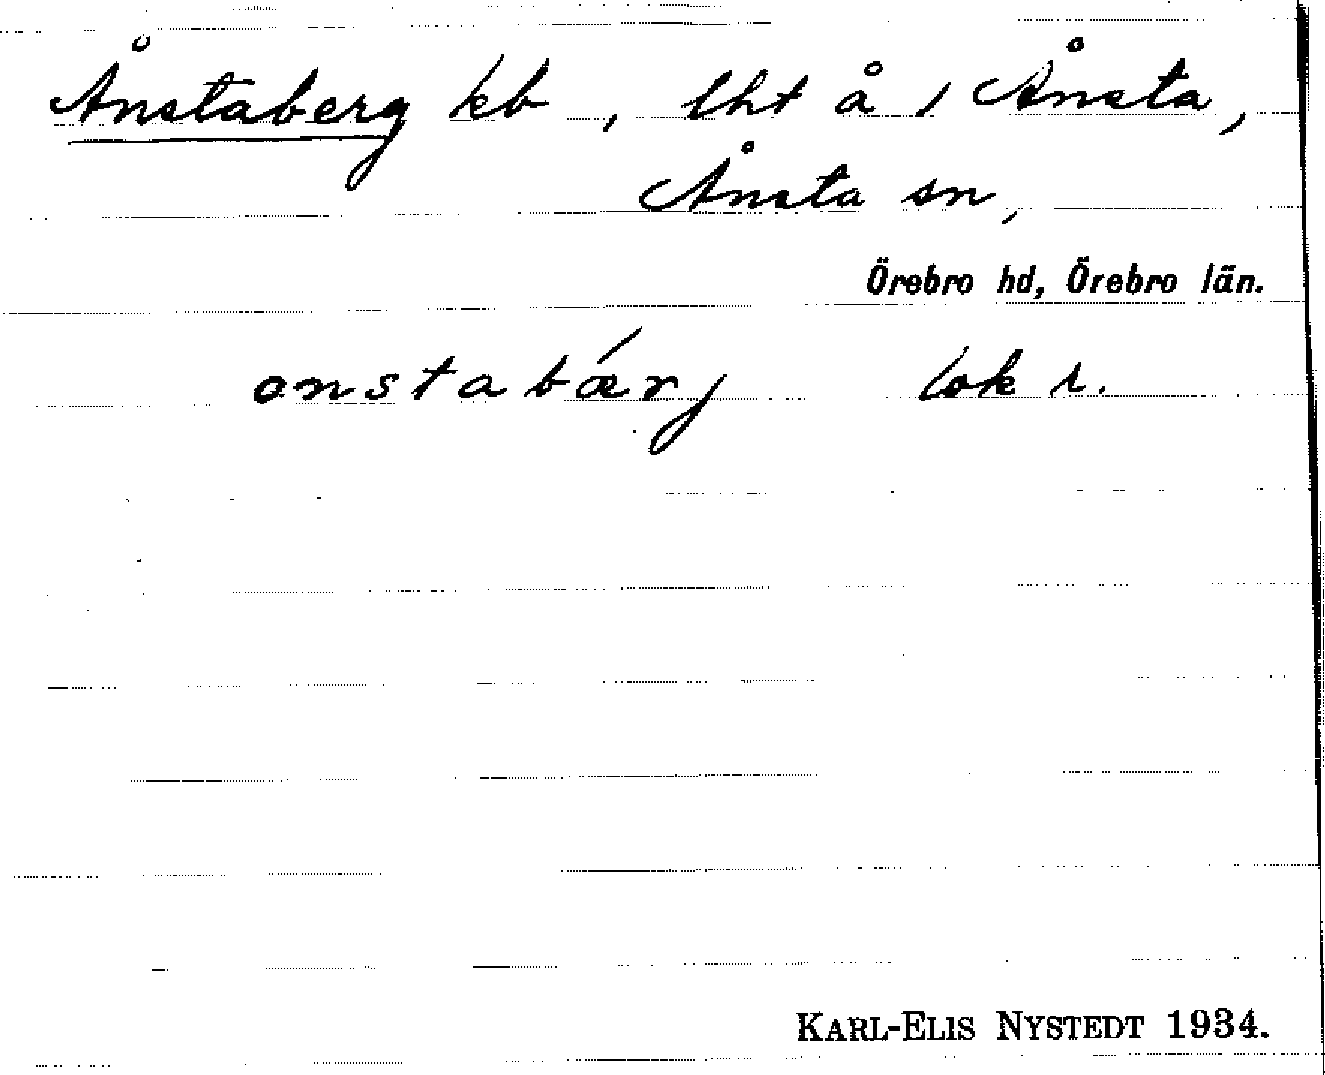 Ånstaberg kb, lht å 1 Ånsta,
Ånsta sn,
Örebro hd, Örebro län.
onstabǽrj lok r.
KARL-ELIS NYSTEDT 1934.